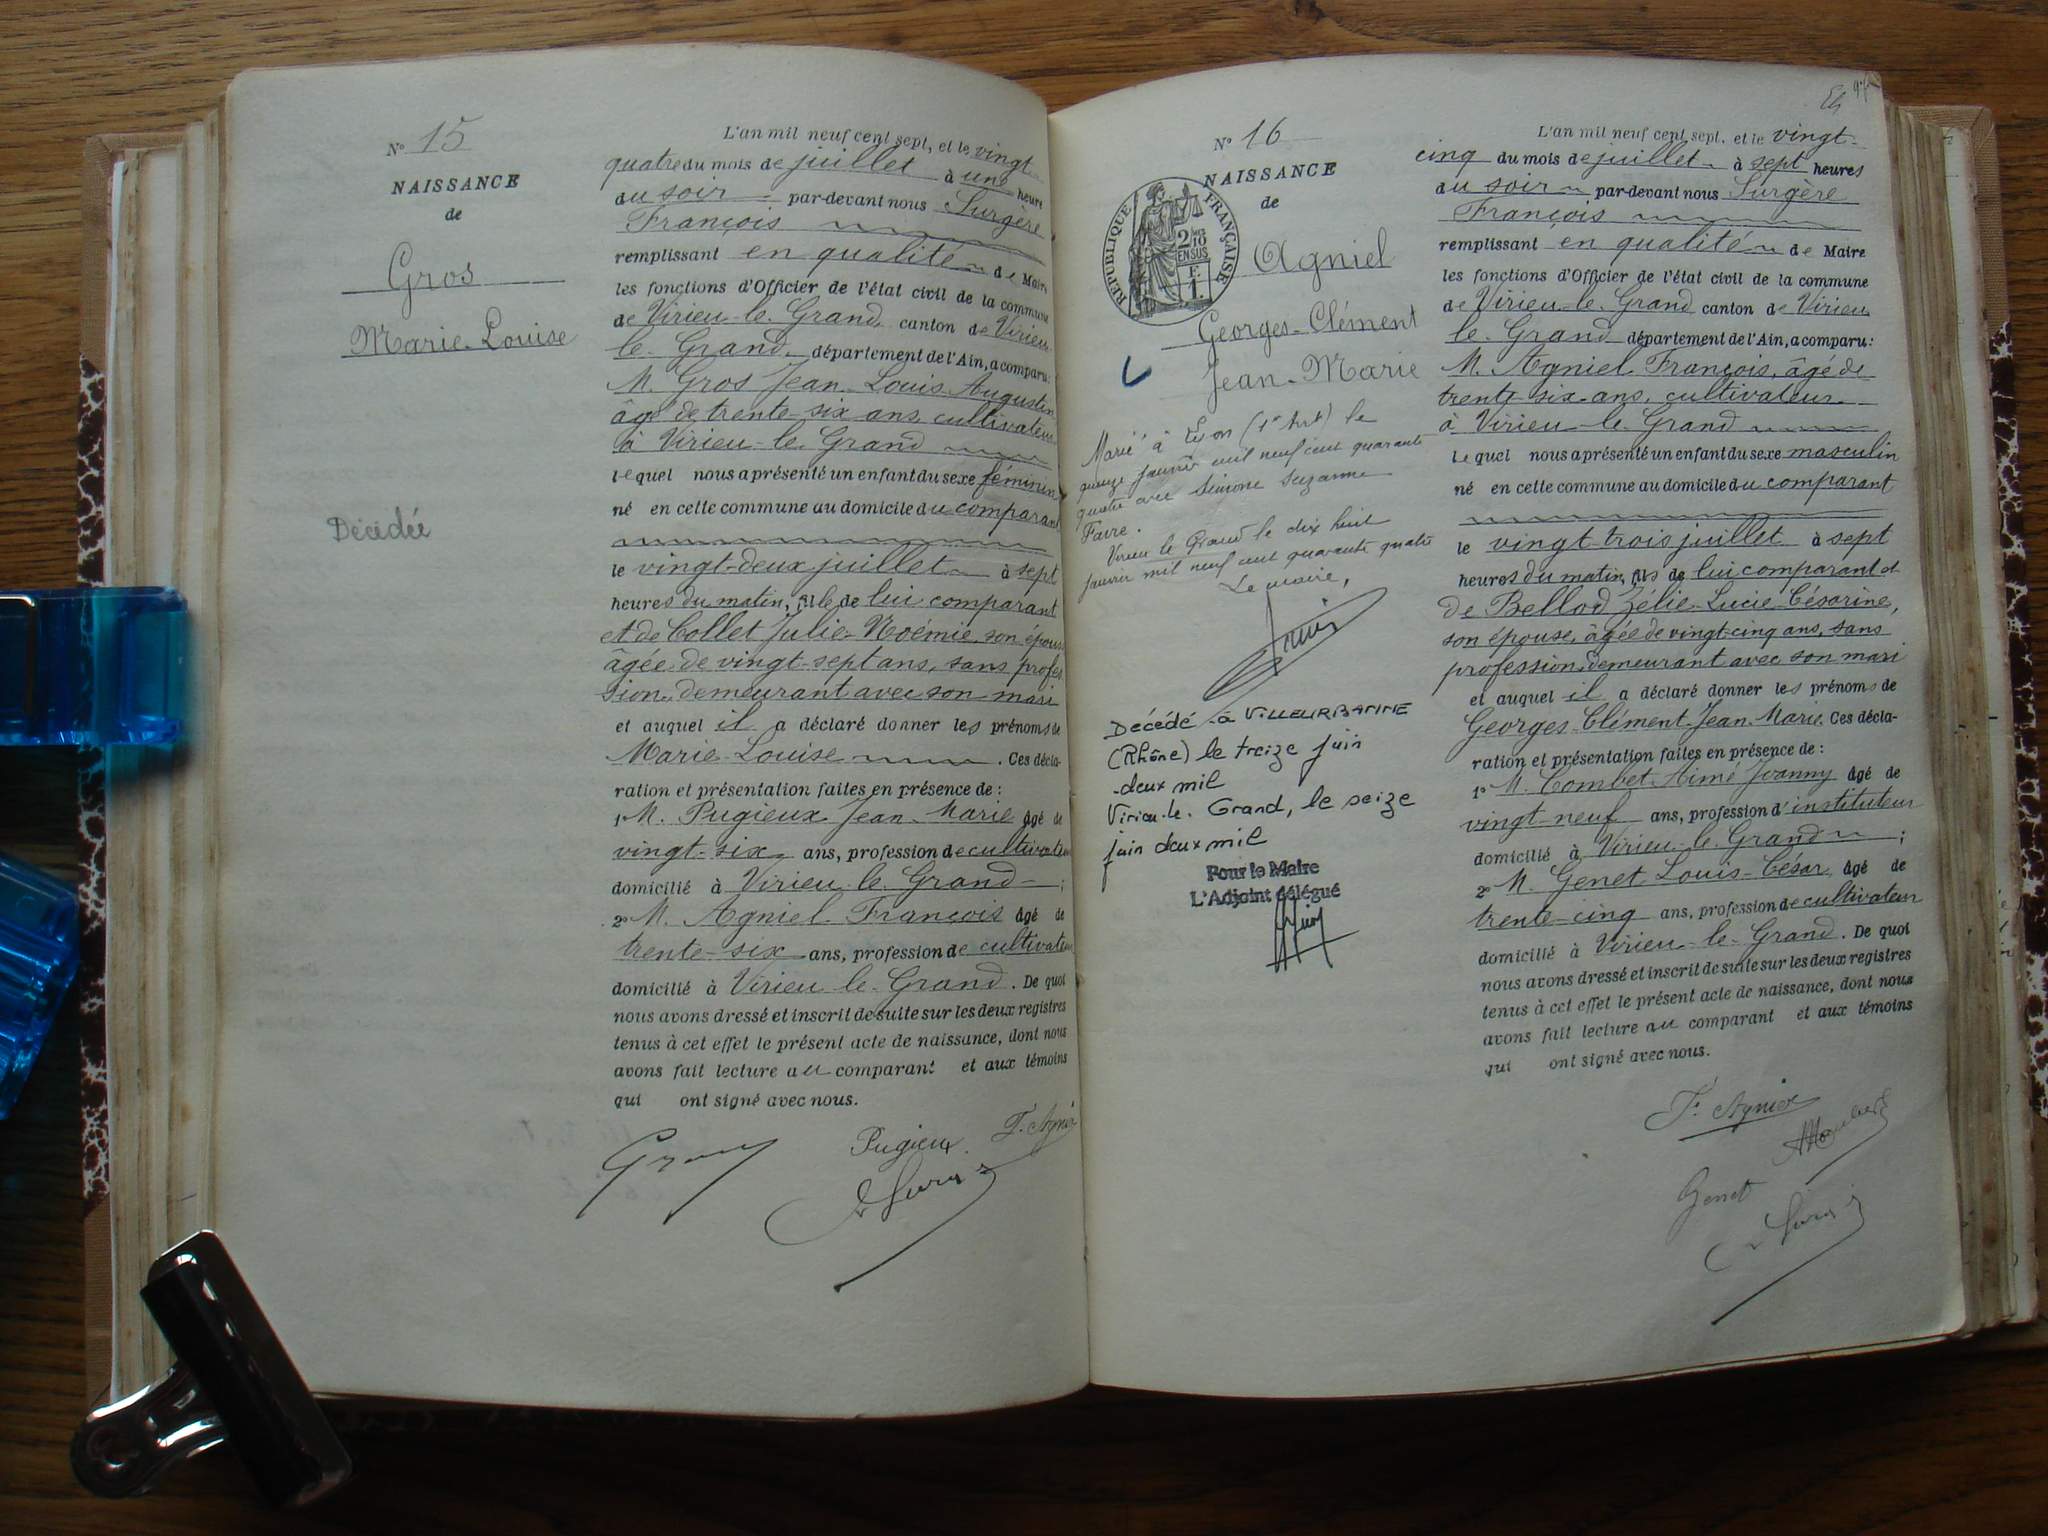 N° 15
NAISSANCE
de
Gros
Marie-Louise
Décédée
L'an mil neuf cent sept, et le vingt-
quatre du mois de juillet à une heure
du soir par-devant nous Surgère
François
remplissant en qualité de Maire
les fonctions d'Officier de l'état civil de la commune
de Virieu-le-Grand, canton de Virieu
le-Grand, département de l'Ain, a comparu:
M. Gros Jean-Louis-Augustin
âgé de trente-six ans, cultivateur
à Virieu-le-Grand
lequel nous a présenté un enfant du sexe féminin
né en cette commune au domicile du comparant
le vingt-deux juillet à sept
heures du matin, fille de lui comparant
et de Collet Julie-Noémie, son épouse
âgée de vingt-sept ans, sans profes
sion, demeurant avec son mari
et auquel il a déclaré donner les prénoms de
Marie-Louise . Ces décla-
ration et présentation faites en présence de :
1° M. Pugieux Jean-Marie âgé de
vingt-six ans, profession de cultivateur
domicilié à Virieu-le-Grand ;
2° M. Agniel François âgé de
trente-six ans, profession de cultivateur
domicilié à Virieu-le-Grand. De quoi
nous avons dressé et inscrit de suite sur les deux registres
tenus à cet effet le présent acte de naissance, dont nous
avons fait lecture au comparant et aux témoins
qui ont signé avec nous.
Gros Pugieux F. Agniel
97
N° 16
NAISSANCE
de
RÉPUBLIQUE FRANÇAISE
2/10 EN SUS
F. 1.
Agniel
Georges-Clément
Jean-Marie
Marié à Lyon (1er Arrt) le
quinze janvier mil neuf cent quarante
quatre avec Simone Suzanne
Favre.
Virieu le Grand le dix huit
janvier mil neuf cent quarante quatre
Le maire,
Décédé à VILLEURBANNE
(Rhône) le treize juin
deux mil
Virieu-le-Grand, le seize
juin deux mil
Pour le Maire
L'Adjoint délégué
L'an mil neuf cent sept, et le vingt-
cinq du mois de juillet à sept heures
du soir par-devant nous Surgère
François
remplissant en qualité de Maire
les fonctions d'Officier de l'état civil de la commune
de Virieu-le-Grand canton de Virieu
le-Grand département de l'Ain, a comparu:
M. Agniel François, âgé de
trente-six ans, cultivateur
à Virieu-le-Grand
lequel nous a présenté un enfant du sexe masculin
né en cette commune au domicile du comparant
le vingt-trois juillet à sept
heures du matin, fils de lui comparant et
de Bellod Zélie-Lucie-Césarine,
son épouse, âgée de vingt-cinq ans, sans
profession, demeurant avec son mari
et auquel il a déclaré donner les prénoms de
Georges-Clément-Jean-Marie. Ces décla-
ration et présentation faites en présence de :
1° M. Combet Aimé Joanny âgé de
vingt-neuf ans, profession d'instituteur
domicilié à Virieu-le-Grand ;
2° M. Genet Louis-César âgé de
trente-cinq ans, profession de cultivateur
domicilié à Virieu-le-Grand. De quoi
nous avons dressé et inscrit de suite sur les deux registres
tenus à cet effet le présent acte de naissance, dont nous
avons fait lecture au comparant et aux témoins
qui ont signé avec nous.
F. Agniel
Genet